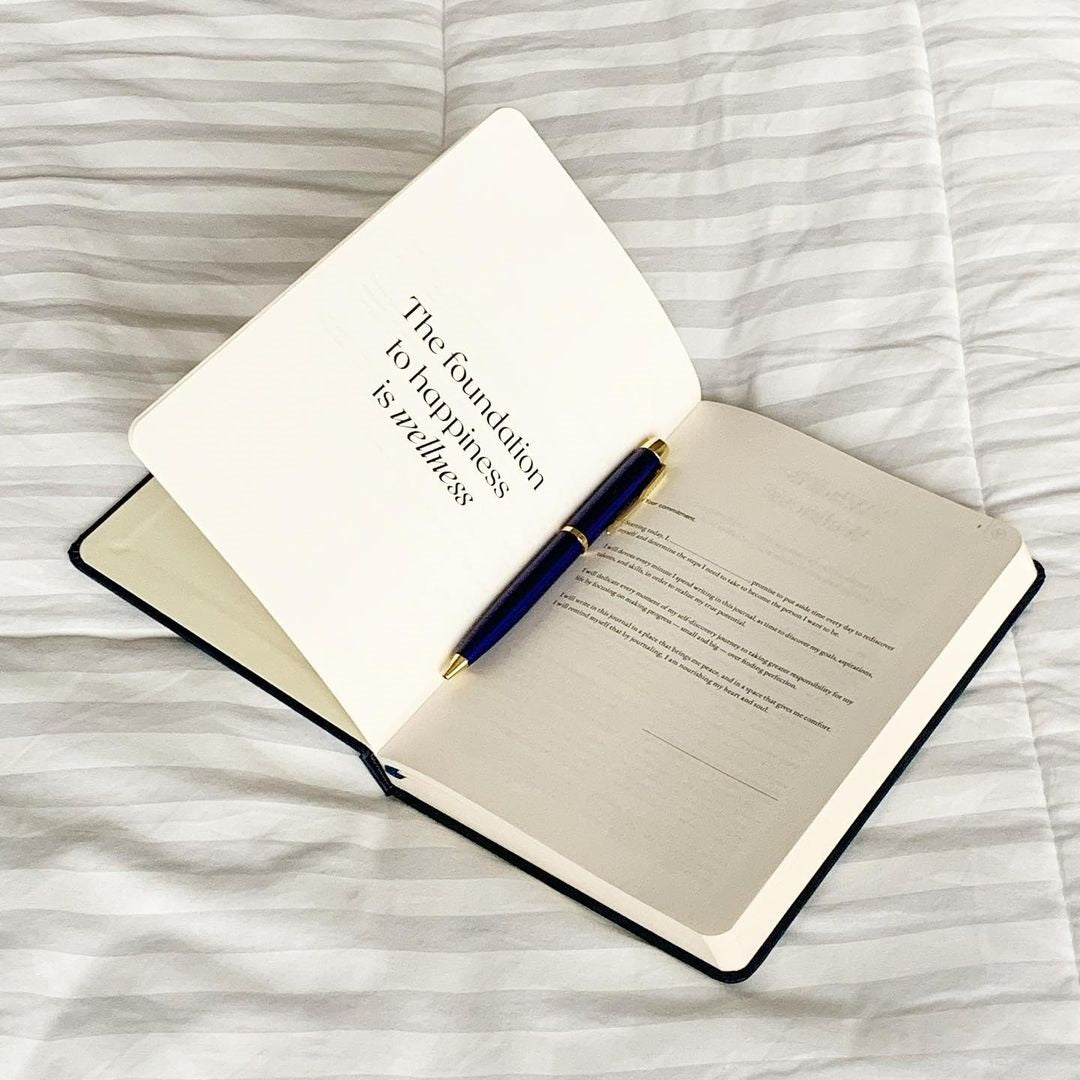 The foundation
to happiness
is wellness
Your commitment.
Starting today, I, ____________________, promise to put aside time every day to rediscover
myself and determine the steps I need to take to become the person I want to be.
I will devote every minute I spend writing in this journal, as time to discover my goals, aspirations,
talents, and skills, in order to realize my true potential.
I will dedicate every moment of my self-discovery journey to taking greater responsibility for my
life by focusing on making progress — small and big — over finding perfection.
I will write in this journal in a place that brings me peace, and in a space that gives me comfort.
I will remind myself that by journaling, I am nourishing my heart and soul.